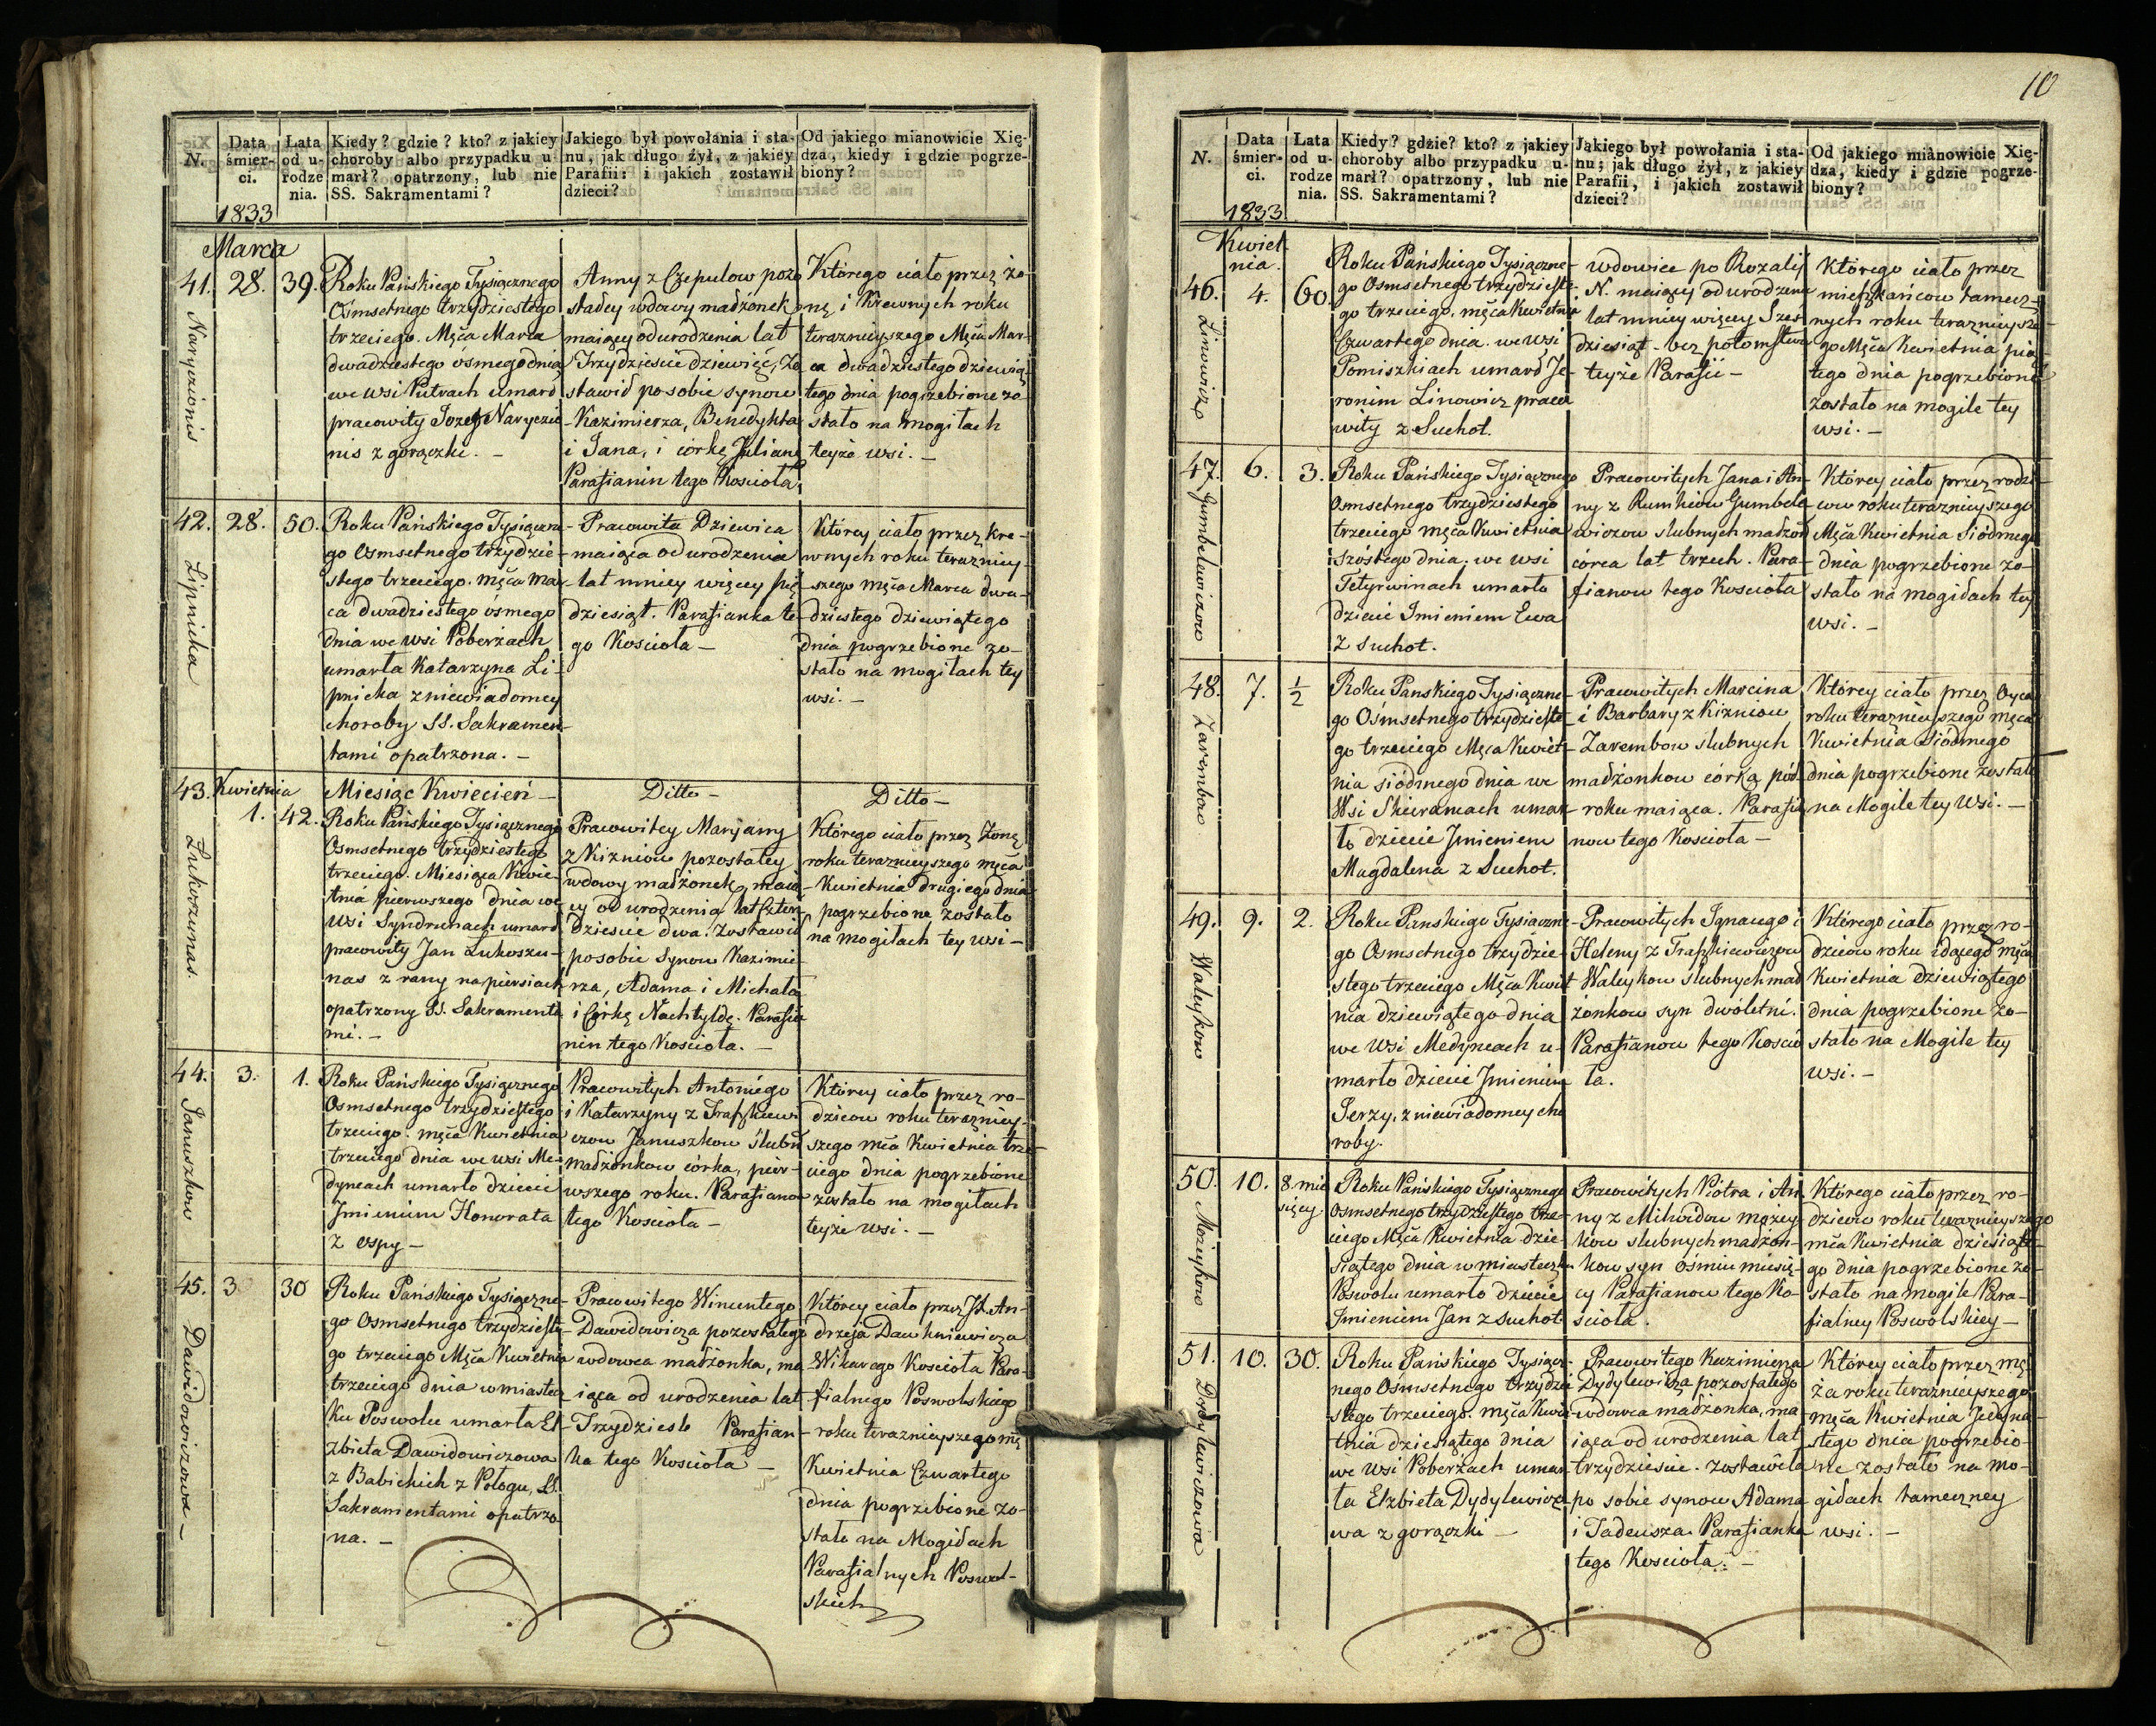 N.
Data śmier-
ci.
1833
Lata
od u-
rodze
nia.
Kiedy? gdzie? kto? z jakiey
choroby albo przypadku u-
marł? opatrzony, lub nie
SS. Sakramentami?
Jakiego był powołania i sta-
nu, jak długo żył, z jakiey
Parafii: i jakich zostawił
dzieci?
Od jakiego mianowicie Xię-
dza, kiedy i gdzie pogrze-
biony?
Marca
41. 28. 39.
Naryczionis
Roku Pańskiego Tysiącznego
Osmsetnego trzydziestego
trzeciego. Mca Marca
dwadziestego osmego dnia
we wsi Putrach umarł
pracowity Jozef Naryczio
nis z gorączki. -
Anny z Czepulow pozo
stałey wdowy madżonek
maiący od urodzenia lat
Trzydzieście dziewięć, Zo
stawił po sobie synow
Kazimierza, Benedykta
i Jana, i córkę Julianę
Parafianin tego Kościoła
Którego ciało przez żo-
nę i Krewnych roku
teraznieyszego Mca Mar-
ca dwadziestego dziewią
tego dnia pogrzebione zo-
stało na mogiłach
teyże wsi. -
42. 28. 50.
Lipnicka
Roku Pańskiego Tysiączne
go Osmsetnego trzydzie-
stego trzeciego. mca Mar
ca dwadziestego ósmego
dnia we wsi Poberżach
umarła Katarzyna Li-
pnicka z niewiadomey
choroby SS. Sakramen-
tami opatrzona. -
Pracowita Dziewica
maiąca od urodzenia
lat mniey więcey pię
dziesiąt. Parafianka te-
go Kościoła -
Którey ciało przez kre-
wnych roku terazniey-
szego mca Marca dwa-
dziestego dziewiątego
dnia pogrzebione zo-
stało na mogiłach tey
wsi. -
43. Kwietnia
1. 42.
Łukoszunas.
Miesiąc Kwiecień -
Roku Pańskiego Tysiącznego
Osmsetnego trzydziestego
trzeciego. Miesiąca Kwie-
tnia pierwszego dnia we
wsi Syndrunach umarł
pracowity Jan Łukoszu-
nas z rany na piersiach
opatrzony SS. Sakramenta
mi. -
Ditto -
Pracowitey Maryanny
z Kizniow pozostałey
wdowy madżonek, maią
cy od urodzenia lat czter
dzieście dwa. Zostawił
po sobie Synow Kazimie
rza, Adama i Michała
i Córkę Nachtyldę. Parafia
nin tego Kościoła. -
Ditto -
Którego ciało przez Żonę
roku teraznieyszego mca
Kwietnia drugiego dnia
pogrzebione zostało
na mogiłach tey wsi -
44. 3. 1.
Januszkow
Roku Pańskiego Tysiącznego
Osmsetnego trzydziestego
trzeciego. mca Kwietnia
trzeciego dnia we wsi Me-
dyncach umarło dziecie
Imieniem Honorata
z ospy -
Pracowitych Antoniego
i Katarzyny z Trafzkiewi
czow Januszkow Slubn
madżonkow córka, pier-
wszego roku. Parafianow
tego Kościoła -
Którey ciało przez ro-
dzicow roku terazniey-
szego mca Kwietnia trze-
ciego dnia pogrzebione
zostało na mogiłach
teyże wsi. -
45. 3 30
Dawidowiczowa -
Roku Pańskiego Tysiączne-
go Osmsetnego trzydzieste-
go trzeciego Mca Kwietnia
trzeciego dnia w miastecz
ku Poswolu umarła El-
zbieta Dawidowiczowa
z Babickich z Połogu, SS.
Sakramentami opatrzo
na. -
Pracowitego Wincentego
Dawidowicza pozostałego
wdowca madżonka, ma
iąca od urodzenia lat
Trzydzieście Parafian-
ka tego Kościoła -
Którey ciało przez JX. An-
drzeja Daukniewicza
Wikarego Kościoła Para-
fialnego Poswolskiego
roku teraznieyszego mc
Kwietnia Czwartego
dnia pogrzebione zo-
stało na Mogiłach
Parafialnych Poswol-
skich
10
N.
Data
śmier-
ci.
1833
Lata
od u-
rodze
nia.
Kiedy? gdzie? kto? z jakiey
choroby albo przypadku u-
marł? opatrzony, lub nie
SS. Sakramentami?
Jakiego był powołania i sta-
nu; jak długo żył, z jakiey
Parafii, i jakich zostawił
dzieci?
Od jakiego mianowicie Xię-
dza, kiedy i gdzie pogrze-
biony?
Kwiet
nia.
46. 4. 60.
Linowicz
Roku Pańskiego Tysiączne-
go Osmsetnego trzydzieste-
go trzeciego, mca Kwietnia
Czwartego dnia. we wsi
Pomiszkiach umarł Je-
ronim Linowicz praco
wity z Suchot.
wdowiec po Rozalij
N. maiący od urodzenia
lat mniey więcey Szes
dziesiąt - bez potomstwa
teyże Parafii -
Którego ciało przez
mieszkańcow tamecz-
nych roku teraznieysze
go Mca Kwietnia pią-
tego dnia pogrzebione
zostało na mogile tey
wsi. -
47. 6. 3.
Gumbelewiczow
Roku Pańskiego Tysiącznego
Osmsetnego trzydziestego
trzeciego mca Kwietnia
szóstego dnia. we wsi
Tetyrwinach umarło
dziecie Imieniem Ewa
z suchot.
Pracowitych Jana i An-
ny z Rumkiow Gumbele
wiczow slubnych madżon
córca lat trzech. Para-
fianow tego Kościoła
Którey ciało przez rodzi
cow roku teraznieyszego
Mca Kwietnia Siódmego
dnia pogrzebione zo-
stało na mogiłach tey
wsi. -
48. 7. ½
Zarembow
Roku Panskiego Tysiączne-
go Osmsetnego trzydzieste
go trzeciego Mca Kwiet-
nia siódmego dnia we
Wsi Skieramach umar
ło dziecie Imieniem
Magdalena z Suchot.
Pracowitych Marcina
i Barbary z Kizniow
Zarembow slubnych
madżonkow córką pół
roku maiąca. Parafia
now tego Kościoła -
Którey ciało przez Oyca
roku teraznieyszego męca
Kwietnia Siódmego
dnia pogrzebione zostało
na Mogile tey Wsi. -
49. 9. 2.
Waleykow
Roku Panskiego Tysiączne-
go Osmsetnego trzydzie-
stego trzeciego Mca Kwiet
nia dziewiątego dnia
we Wsi Medyncach u-
marło dziecie Imieniem
Jerzy, z niewiadomey cho
roby.
Pracowitych Ignacego i
Heleny z Trafzkiewiczow
Waleykow slubnych mad
żonkow syn dwóletni.
Parafianow tego Koscio
ła.
Którego ciało przez ro-
dzicow roku idącego męca
Kwietnia dziewiątego
dnia pogrzebione zo-
stało na Mogile tey
wsi. -
50. 10. 8. mie
sięcy
Możeykow
Roku Pańskiego Tysiącznego
Osmsetnego trzydziestego trze-
ciego Mca Kwietnia dzie-
siątego dnia w miasteczku
Poswolu umarło dziecie
Imieniem Jan z suchot
Pracowitych Piotra i An
ny z Mikwidow możey-
kow slubnych madżon-
kow syn ósmiu miesię-
cy Parafianow tego Ko-
ścioła.
Którego ciało przez ro-
dzicow roku teraznieyszego
mca Kwietnia dziesiąte-
go dnia pogrzebione zo-
stało na mogile Para-
fialney Poswolskiey -
51. 10. 30.
Dydylewiczowa
Roku Pańskiego Tysiącz-
nego Osmsetnego trzydzie
stego trzeciego. mca Kwie
tnia dziesiątego dnia
we wsi Poberżach umar
ła Elzbieta Dydylewiczo
wa z gorączki -
Pracowitego Kazimierza
Dydylewicza pozostałego
wdowca madżonka, ma
iąca od urodzenia lat
trzydzieście. zostawiła
po sobie synow Adama
i Tadeusza. Parafianka
tego Kościoła. -
Którey ciało przez mę-
ża roku teraznieyszego
męca Kwietnia Jedyna-
stego dnia pogrzebio-
ne zostało na mo-
giłach tameczney
wsi. -